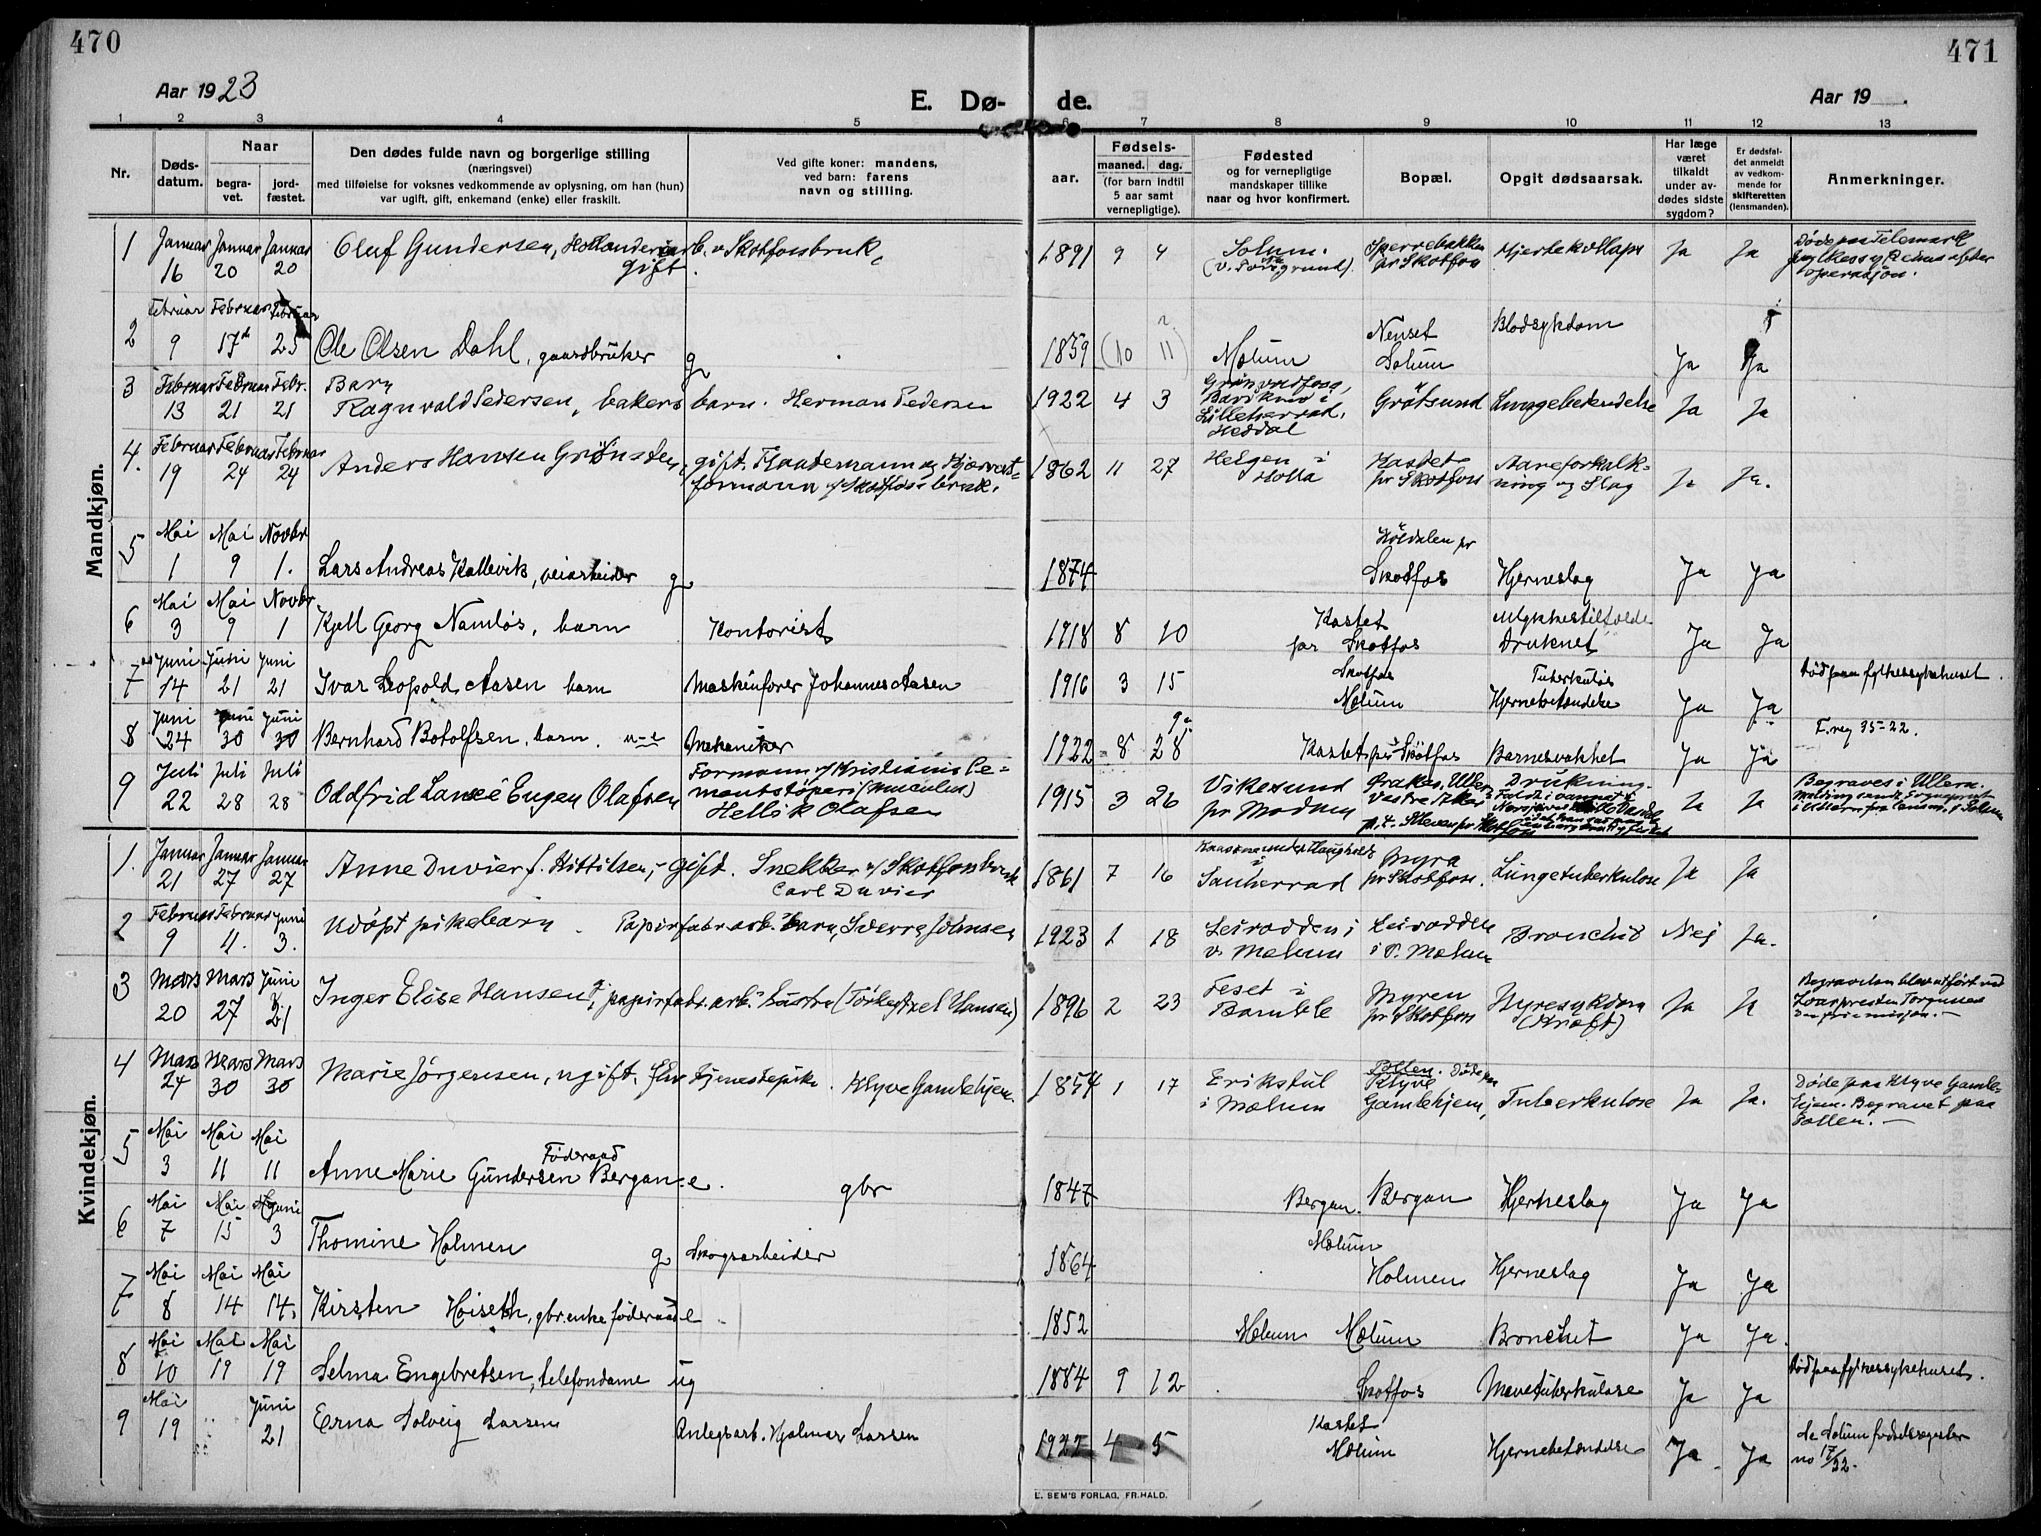 470
471
Aar 1923
E. Dø-
de.
Aar 19
1 2 3 4 5 6 7 8 9 10 11 12 13
Nr.
Døds-
datum.
Naar
begra-
vet.
jord-
fæstet.
Den dødes fulde navn og borgerlige stilling
(næringsvei)
med tilføielse for voksnes vedkommende av oplysning, om han (hun)
var ugift, gift, enkemand (enke) eller fraskilt.
Ved gifte koner: mandens,
ved barn: farens
navn og stilling.
Fødsels-
aar.
maaned. dag.
(for barn indtil
5 aar samt
vernepligtige).
Fødested
og for vernepligtige
mandskaper tillike
naar og hvor konfirmert.
Bopæl.
Opgit dødsaarsak.
Har læge
været
tilkaldt
under av-
dødes sidste
sygdom?
Er dødsfal-
det anmeldt
av vedkom-
mende for
skifteretten
(lensmanden).
Anmerkninger.
Mandkjøn.
1 Januar 16 Januar 20 Januar 20 Oluf Gundersen, Hollanderarb. v. Skotfossbruk,
gift. 1891 9 4 Solum. Sperrebakken pr Skotfos Hjertekollaps Ja Ja Døde paa Telemark fylkessygehus efter operasjon.
2 Februar 9 Februar 17de Februar 25 Ole Olsen Dahl, gaardbruker g 1859 (10 11) Mælum Nenset Solum Blodsykdom Ja Ja
3 Februar 13 Februar 21 Febr. 21 Barn
Ragnvald Pedersen, bakers barn. Herman Pedersen 1922 4 3 Lilleherrad, Heddal Grøtsund Lungebetendelse Ja Ja
4. Februar 19 Februar 24 Februar 24 Anders Hansen Grönsten, gift. Flaadermann og
formann v/ Skotfoss bruk. 1862 11 27 Helgen i Holla Kastet pr Skotfoss Aareforkalk-
ning og Slag Ja Ja.
5 Mai 1 Mai 9 Novbr 1. Lars Andreas Kallevik, veiarbeider g 1874 pr Skotfos Hjerneslag Ja Ja
6 Mai 3 Mai 9 Novbr 1 Kjell Georg Namløs, barn Kontorist 1918 8 10 Kastet pr Skotfos Ulykkestilfælde Druknet Ja Ja
7 Juni 14 Juni 21 Juni 21 Ivar Leopold Aasen barn Maskinfører Johannes Aasen 1916 3 15 Skotfos Mælum Tuberkuløs Hjernebetændelse Ja Ja Død paa fylkessykehuset.
8 Juni 24 Juni 30 Juni 30 Bernhard Botolfsen, barn. u-e Mekaniker 1922 8 28 Kastet pr Skotfos Barnesvakhet Ja Ja F. reg 35-22.
9 Juli 22 Juli 28 Juli 28 Oddfrid Eugen Olafsen Formann v/ Kristiania Ce-
mentstøperi
Hellik Olafsen 1915 3 26 Vikesund pr Modum Vestre Aker Drukning. Ja Ja Begraves i Ullern.
Kvindekjøn.
1. Januar 21 Januar 27 Januar 27 Anne Duvier f. Kittilsen, gift. Snekker v/ Skotfossbruk
Carl Duvier 1861 7 16 i Sauherrad Myra pr Skotfoss. Lungetuberkulose Ja Ja
2 Februar 9 Februar 11. Juni 3. Udöpt pikebarn. Papirfabr. arb. barn, Sverre Johnsen 1923 1 18 Leirodden i v. Mælum Leirodden i v. Mælum Bronchit Nei Ja.
3 Mars 20 Mars 27 Juni Inger Elise Hansen, g. papirfabr. arb. hustru (Axel Hansen) 1896 2 23 Feset i Bamble Myren pr Skotfoss Nyresykdom (Kræft) Ja Ja
4 Mars 24 Mars 30 Mars 30 Marie Jörgensen, ugift, tjenestepike. Klyve Gamlehjem. 1854 1 17 Erikstul i Mælum Klyve Gamlehjem, Tuberkulose Ja Ja. Døde paa Klyve Gamle-
hjem. Begravet paa
5 Mai 3 Mai 11 Mai 11 Føderaad
Anne Marie Gundersen Bergan e. gbr 1847 Bergan. Bergan Hjerneslag Ja Ja
6 Mai 7 Mai 15 Juni 3 Thomine Holmen g Skogsarbeider 1864 Mælum Holmen Hjerneslag Ja Ja
7 Mai 8 Mai 14 Mai 14. Kirsten Høiseth, gbr. enke føderaad e 1852 Mælum Mælum Bronchit Ja Ja
8 Mai 10 Mai 19 Mai 19 Selma Engebretsen, telefondame ug 1884 9 12 Skotfos Mavetuberkulose Ja Ja Død paa fylkessykehuset.
9 Mai 19 Juni 21 Erna Solveig Larsen Anlegsarb. Hjalmar Larsen 1922 4 5 Kastet Mælum Hjernebetændelse Ja Ja Se Solum fødselsregister
no 17/22.
E. SEM'S FORLAG, FR.HALD.